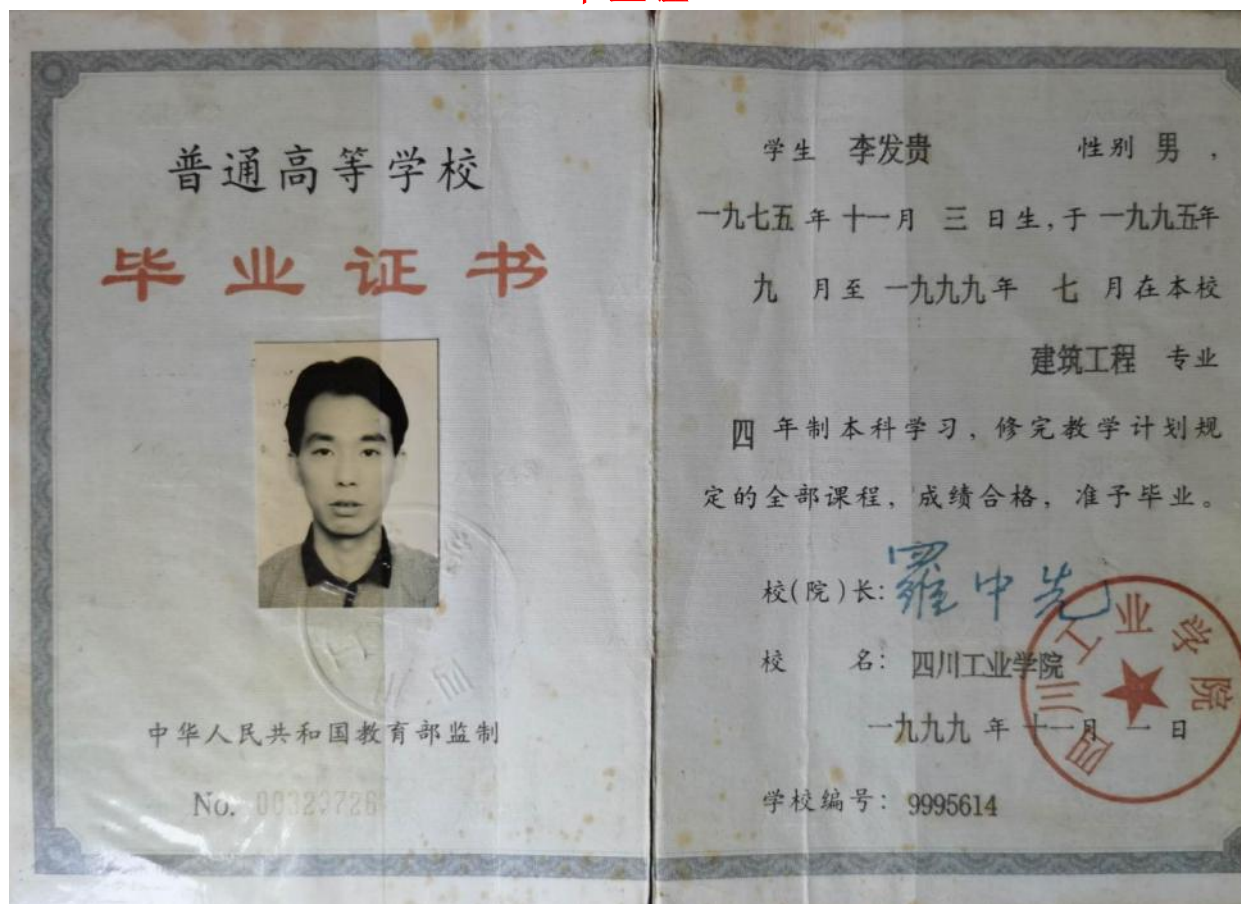 普通高等学校
毕业证书
中华人民共和国教育部监制
No. 00323726
学生 李发贵 性别 男,
一九七五年十一月 三 日生,于 一九九五年
九 月至 一九九九年 七 月在本校
建筑工程 专业
四 年制本科学习,修完教学计划规
定的全部课程,成绩合格,准予毕业。
校(院)长: 羅中先
校 名: 四川工业学院
一九九九 年 十一月 一 日
学校编号: 9995614
四川工业学院